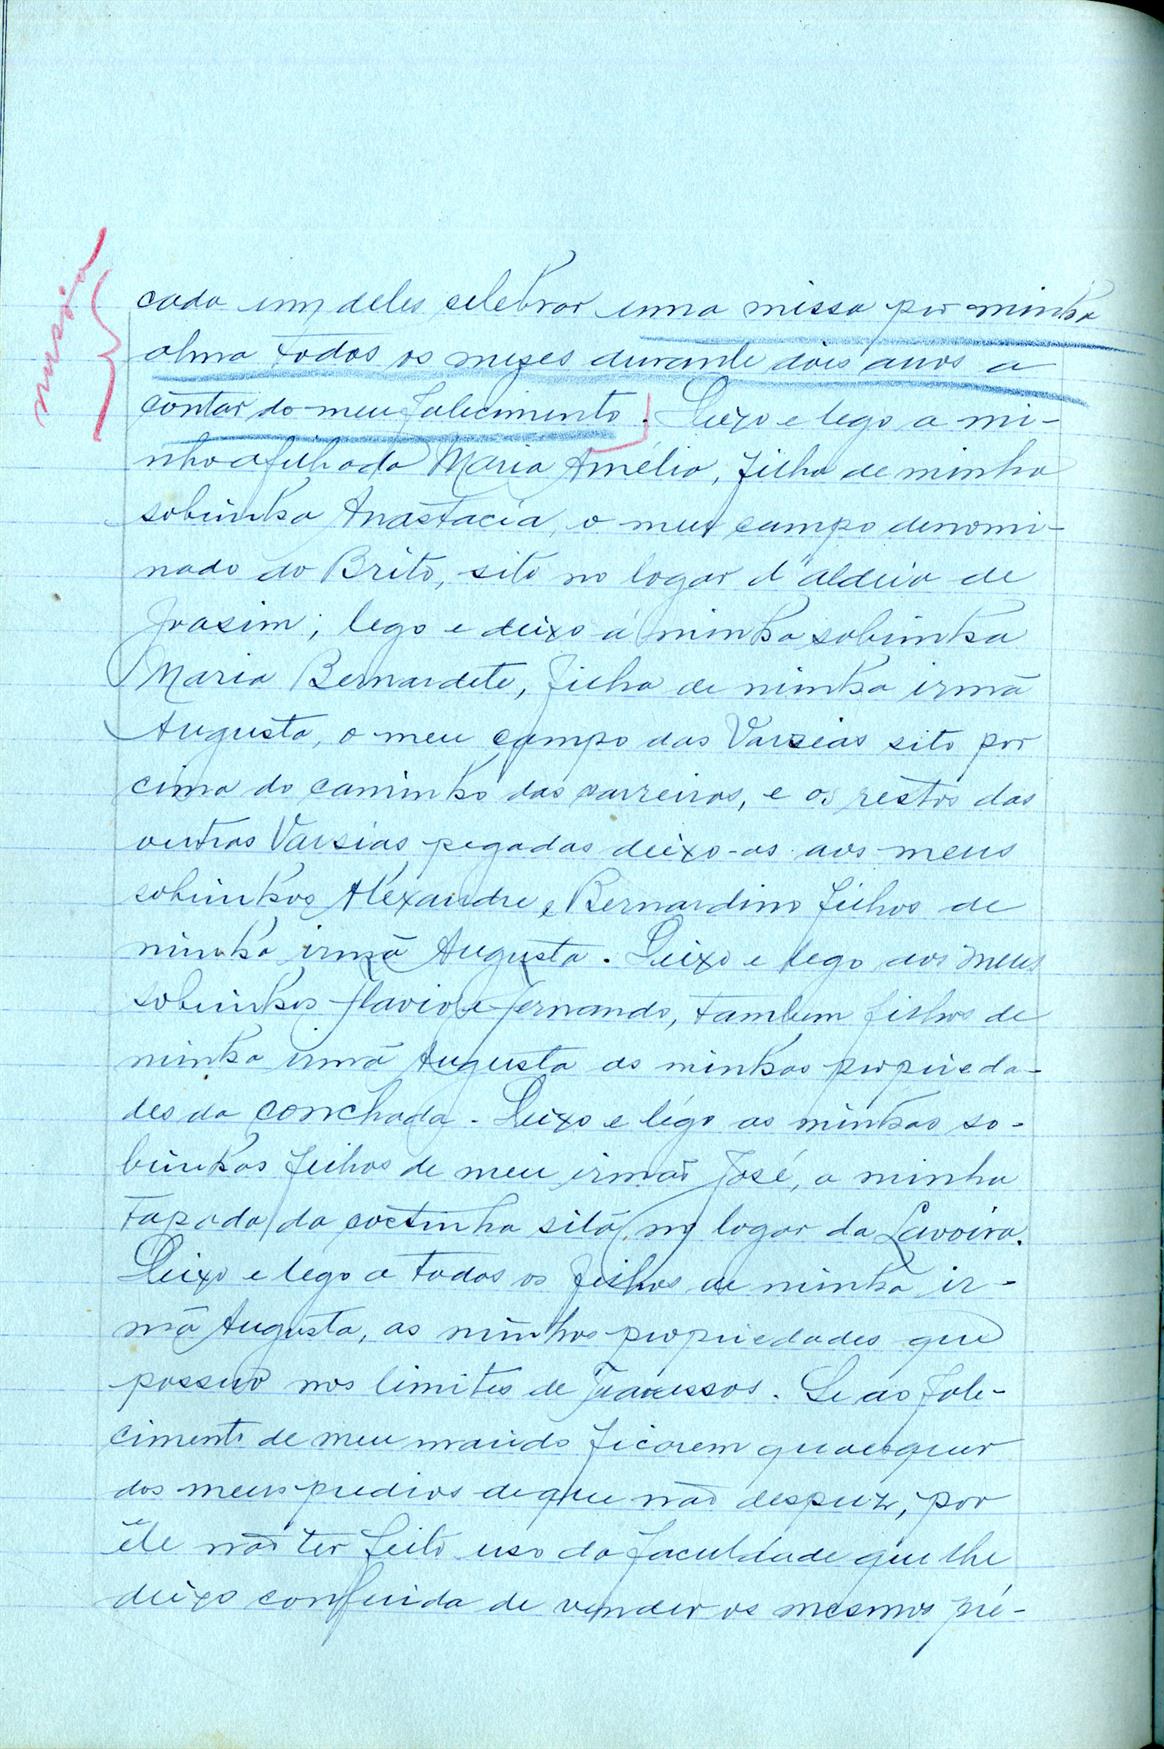 cada um deles celebrar uma missa por minha
alma todos os mezes durante dois anos a
contar do meu falecimento. Deixo e lego a mi-
nha afilhada Maria Amélia, filha de minha
sobrinha Anastacia, o meu campo denomi-
nado do Brito, sito no logar d'aldeia de
; lego e deixo á minha sobrinha
Maria Bernardete, filha de minha irmã
Augusta, o meu campo das Varzeas sito por
cima do caminho das carreiras, e os restos das
outras Varsias pegadas deixo-as aos meus
sobrinhos Alexandre e Bernardino filhos de
minha irmã Augusta. Deixo e lego aos meus
sobrinhos Flavio e Fernando, tambem filhos de
minha irmã Augusta as minhas proprieda-
des da Conchada. Deixo e légo as minhas so-
brinhas filhas de meu irmão José, a minha
Tapada da sitá no logar da
Deixo e lego a todos os filhos de minha ir-
mã Augusta, as minhas propriedades que
possuo nos limites de Travessos. Se ao fale-
cimento de meu marido ficarem quaesquer
dos meus predios de que não despuz, por
êle não ter feito uso da faculdade que lhe
deixo conferida de vender os mesmos pré-